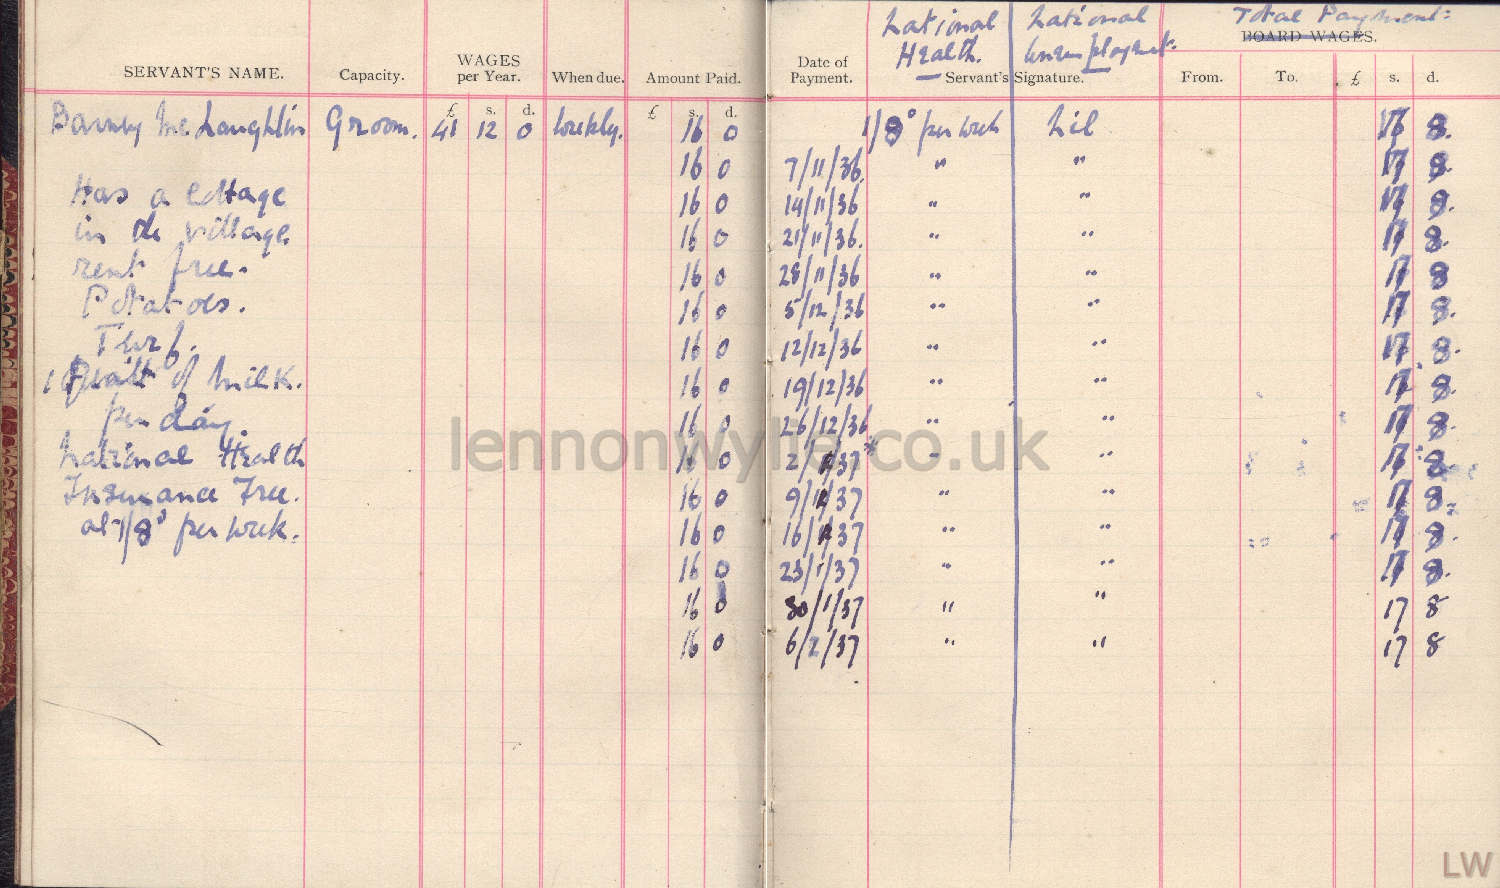 National National Total Payment:
Health. Unemployment. BOARD WAGES.
SERVANT'S NAME. Capacity. WAGES per Year. When due. Amount Paid. Date of Payment. Servant's Signature. From. To. £ s. d.
£ s. d. £ s. d.
Barney McLaughlin Groom. 41 12 0 Weekly. 16 0 1/8 per week Nil 17 8.
16 0 7/11/36. " " 17 8.
Has a cottage 16 0 14/11/36 " " 17 8.
in the village 16 0 21/11/36. " " 17 8.
rent free. 16 0 28/11/36 " " 17 8
Potatoes. 16 0 5/12/36 " " 17 8.
Turf. 16 0 12/12/36 " " 17 8.
1 Quart of Milk. 16 0 19/12/36 " " 17 8.
per day. 16 0 26/12/36 " " 17 8.
National Health 16 0 2/1/37 " " 17 8
Insurance Free. 16 0 9/1/37 " " 17 8.
at 1/8 per week. 16 0 16/1/37 " " 17 8.
16 0 23/1/37 " " 17 8.
16 0 30/1/37 " " 17 8
16 0 6/2/37 " " 17 8
lennonwylie.co.uk
LW